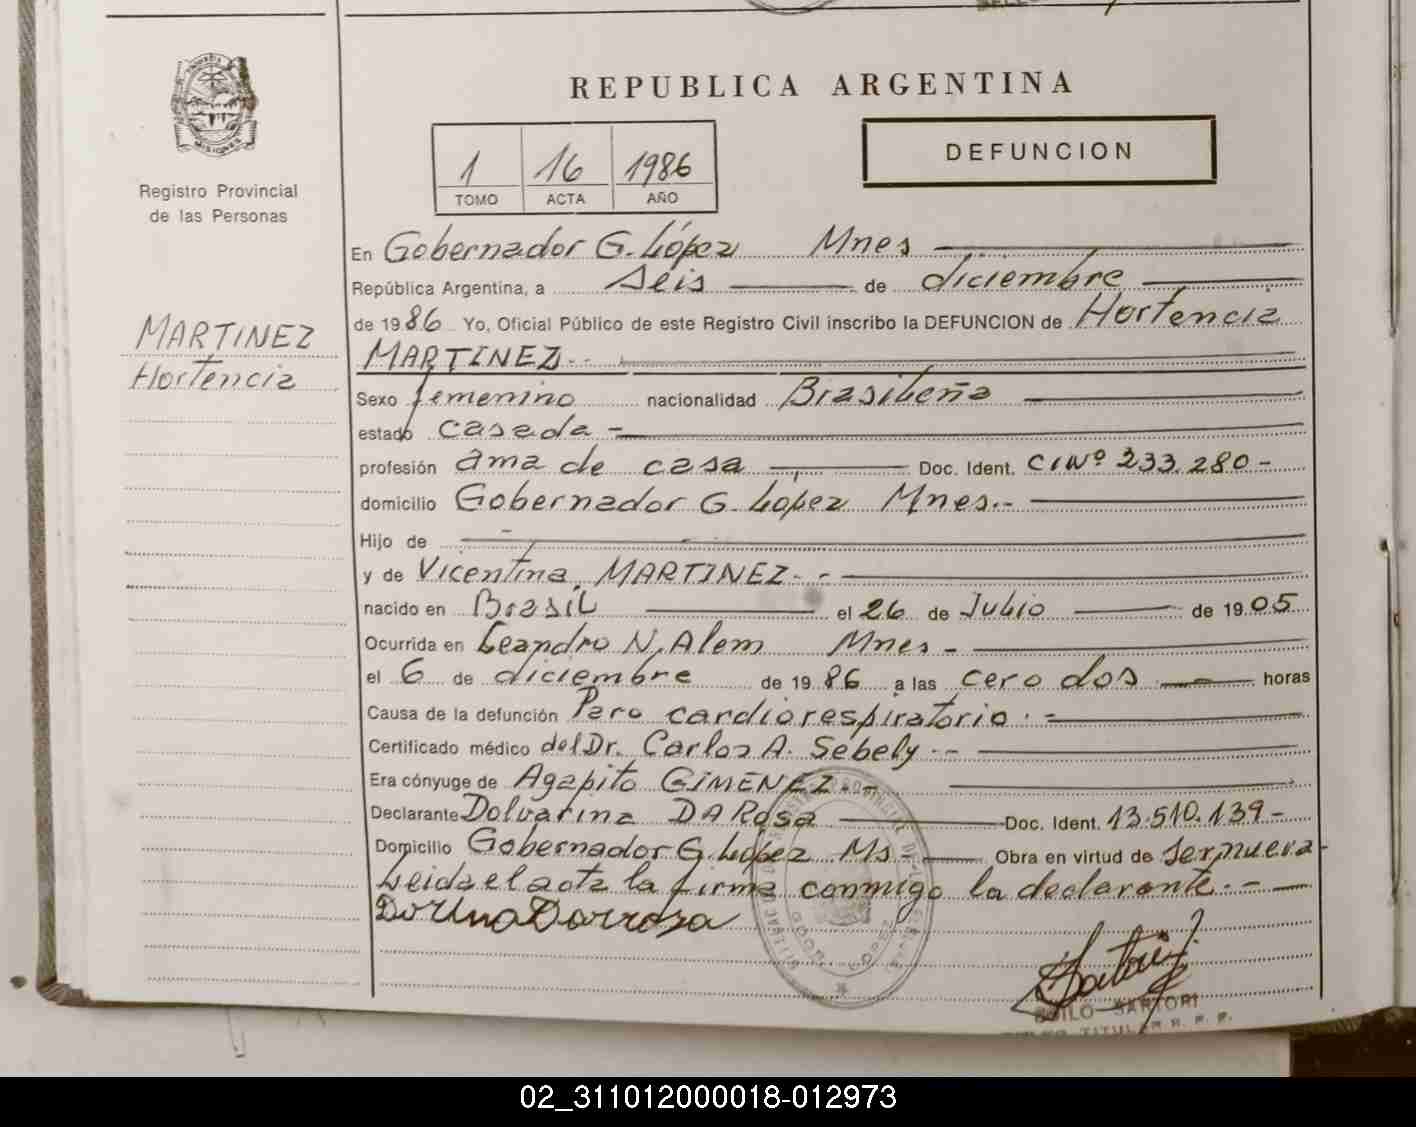 REPUBLICA ARGENTINA
MISIONES
Registro Provincial
de las Personas
1 16 1986
TOMO ACTA AÑO
DEFUNCION
MARTINEZ
Hortencia
En Gobernador G. López Mnes
República Argentina, a Seis de diciembre
de 1986 Yo, Oficial Público de este Registro Civil inscribo la DEFUNCION de Hortencia
MARTINEZ
Sexo femenino nacionalidad Brasileña
estado casada
profesión ama de casa Doc. Ident. CINº 233.280
domicilio Gobernador G. López Mnes.
Hijo de
y de Vicentina MARTINEZ
nacido en Brasil el 26 de Julio de 1905
Ocurrida en Leandro N. Alem Mnes
el 6 de diciembre de 1986 a las cero dos horas
Causa de la defunción Paro cardiorespiratorio
Certificado médico del Dr. Carlos A. Sebely
Era cónyuge de Agapito GIMENEZ
Declarante Dolvarina DA Rosa Doc. Ident. 13.510.139
Domicilio Gobernador G. López Ms Obra en virtud de ser nuera
Leida el acta la firma conmigo la declarante.
SARTORI
TITULAR R. P. P.
02_311012000018-012973